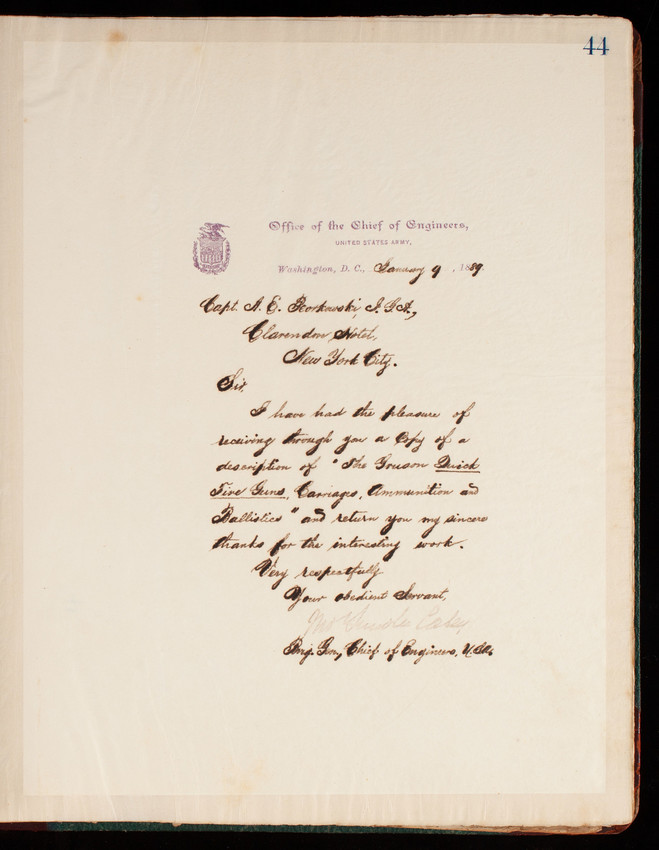 44
Office of the Chief of Engineers,
UNITED STATES ARMY,
Washington, D. C., January 9, 1889.
Capt. A. E. Borkowski, I.G.A.,
Clarendon Hotel,
New York City.
Sir,
I have had the pleasure of
receiving through you a Copy of a
description of "The Gruson Quick
Fire Guns, Carriages, Ammunition and
Ballistics" and return you my sincere
thanks for the interesting work.
Very respectfully
Your obedient Servant,
Brig. Gen, Chief of Engineers, U.S.A.